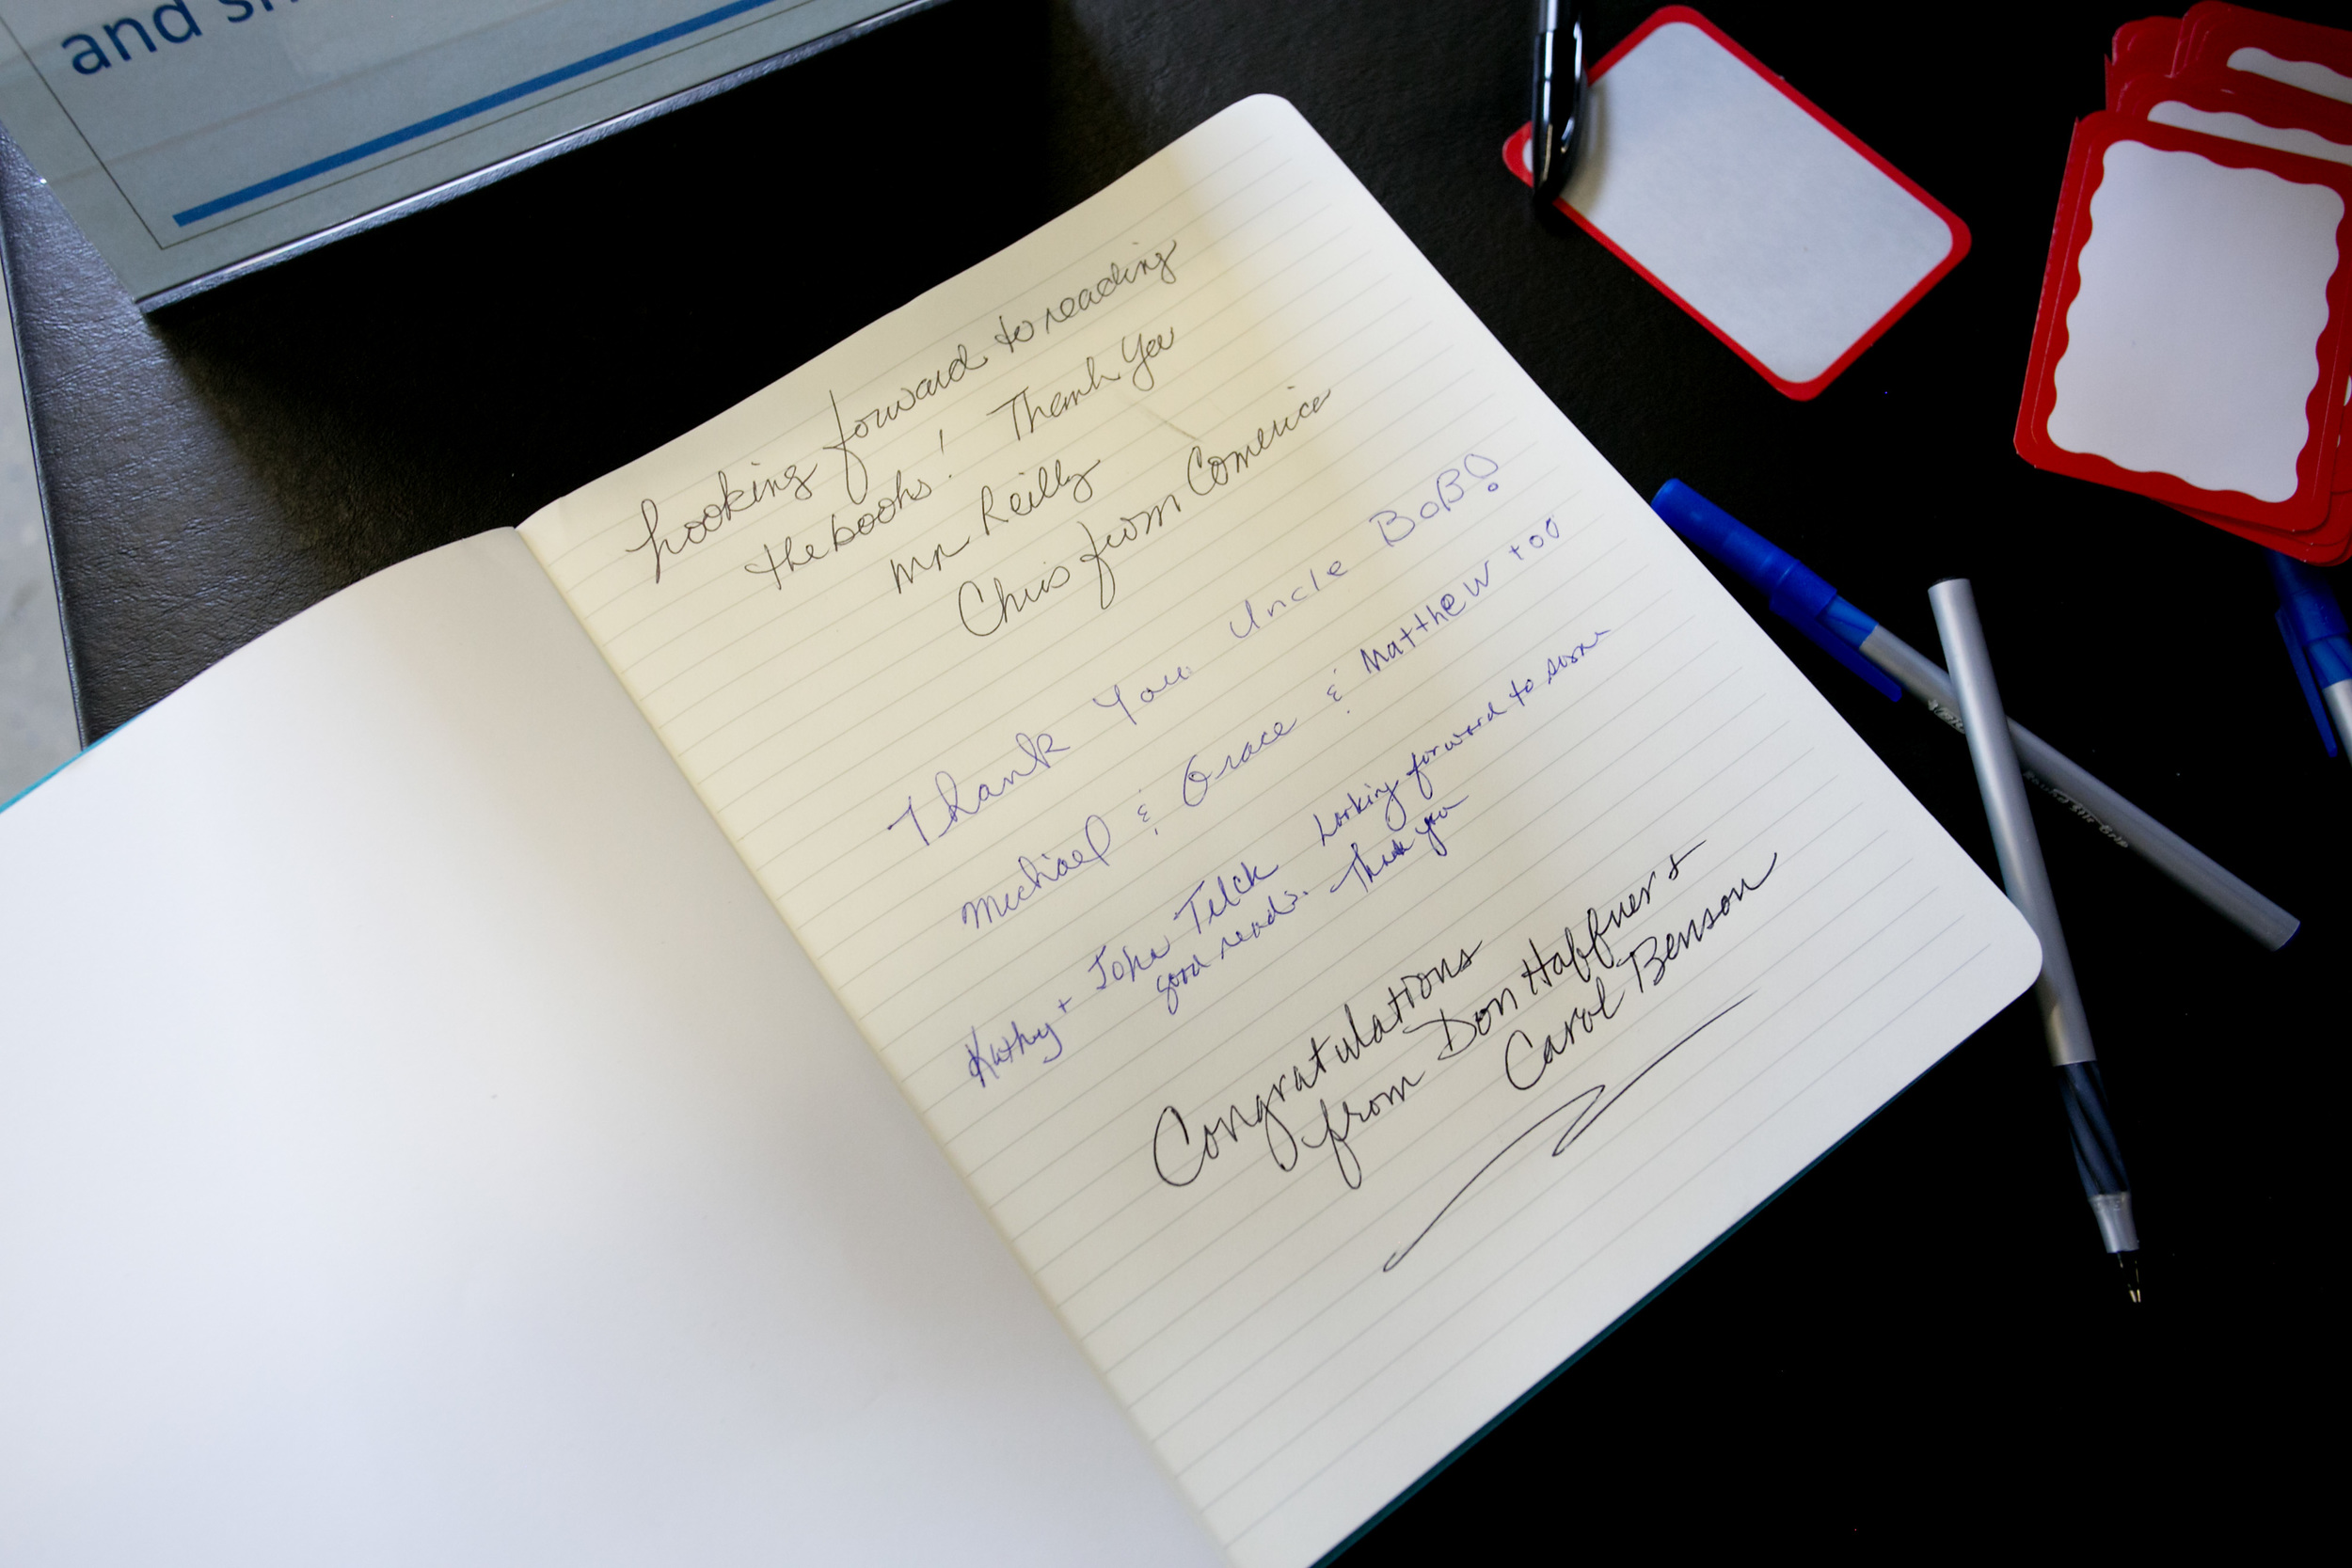 and sh
Looking forward to reading
the books! Thank You
Mr Reilly
Chris from Comerica
Thank You Uncle BoB!
Michael & Grace & Matthew too
Kathy + John Telck Looking forward to some
good reads. Thank you
Congratulations
from Don Haffner &
Carol Benson